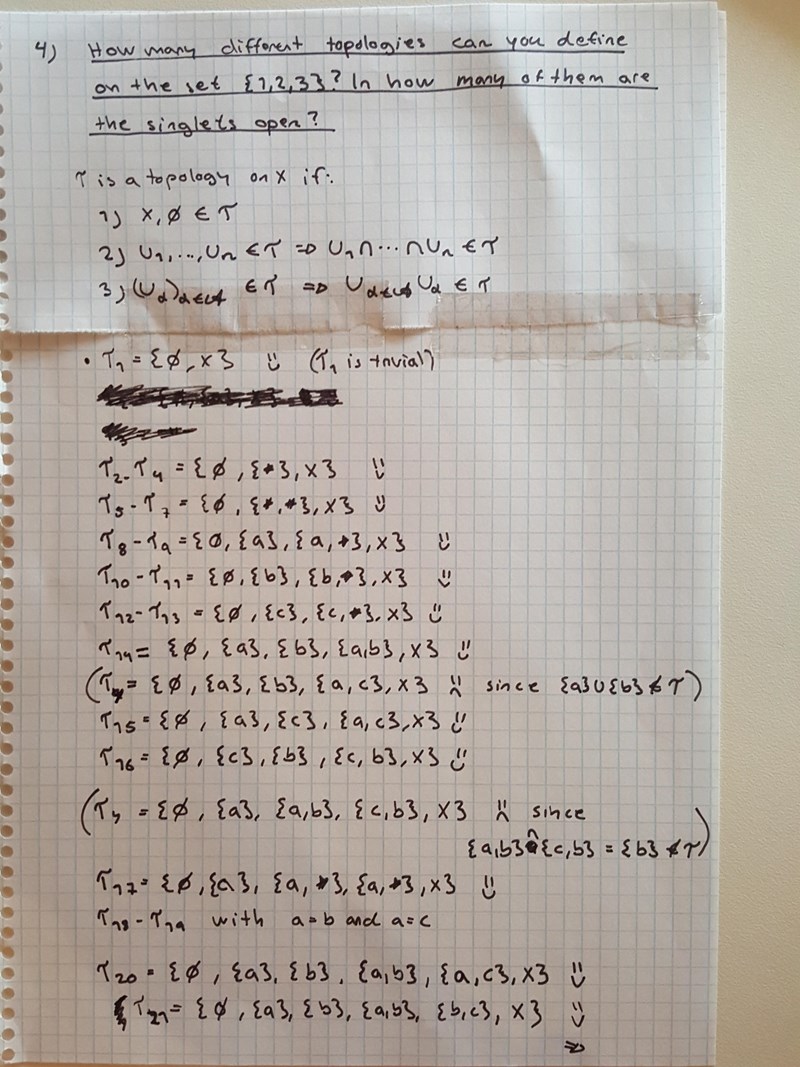 4) How many different topologies can you define
on the set {1,2,3}? In how many of them are
the singlets open?
τ is a topology on X if:
1) X, ∅ ∈ τ
2) U₁, ..., Uₙ ∈ τ ⇒ U₁ ∩ ⋯ ∩ Uₙ ∈ τ
3) (U_α)_α∈A ∈ τ ⇒ ∪_α∈A U_α ∈ τ
• τ₁ = {∅, X} ü (τ₁ is trivial)
τ₂-τ₄ = {∅, {*}, X} ü
τ₅-τ₇ = {∅, {*,*}, X} ü
τ₈-τ₉ = {∅, {a}, {a,*}, X} ü
τ₁₀-τ₁₁ = {∅, {b}, {b,*}, X} ü
τ₁₂-τ₁₃ = {∅, {c}, {c,*}, X} ü
τ₁₄ = {∅, {a}, {b}, {a,b}, X} ü
(τ = {∅, {a}, {b}, {a,c}, X} ☹ since {a}∪{b} ∉ τ)
τ₁₅ = {∅, {a}, {c}, {a,c}, X} ü
τ₁₆ = {∅, {c}, {b}, {c,b}, X} ü
(τ = {∅, {a}, {a,b}, {c,b}, X} ☹ since
{a,b}∩{c,b} = {b} ∉ τ)
τ₁₇ = {∅, {a}, {a,*}, {a,*}, X} ü
τ₁₈-τ₁₉ with a=b and a=c
τ₂₀ = {∅, {a}, {b}, {a,b}, {a,c}, X} ü
τ₂₁ = {∅, {a}, {b}, {a,b}, {b,c}, X} ü
⇒